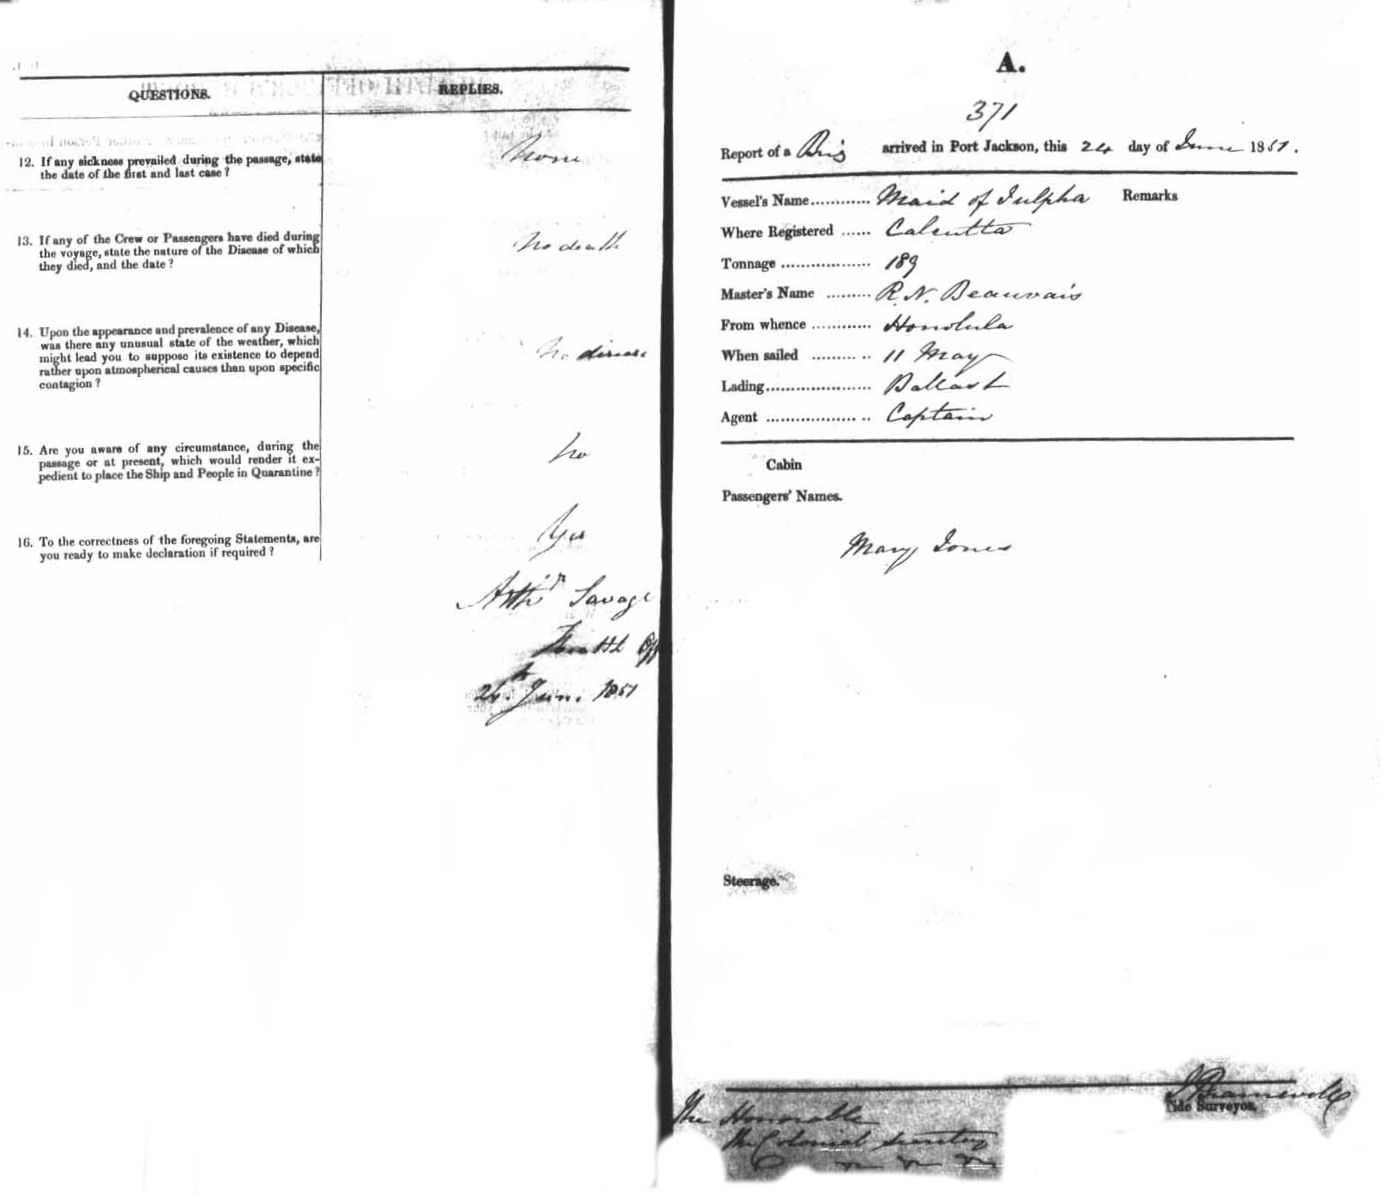 QUESTIONS.
REPLIES.
12. If any sickness prevailed during the passage, state
the date of the first and last case ?
None
13. If any of the Crew or Passengers have died during
the voyage, state the nature of the Disease of which
they died, and the date ?
No death
14. Upon the appearance and prevalence of any Disease,
was there any unusual state of the weather, which
might lead you to suppose its existence to depend
rather upon atmospherical causes than upon specific
contagion ?
No disease
15. Are you aware of any circumstance, during the
passage or at present, which would render it ex-
pedient to place the Ship and People in Quarantine ?
No
16. To the correctness of the foregoing Statements, are
you ready to make declaration if required ?
Yes
Arthr Savage
Health Off
24th June 1851
A.
371
Report of a Brig arrived in Port Jackson, this 24 day of June 1851.
Vessel's Name............ Maid of Julpha Remarks
Where Registered ...... Calcutta
Tonnage .................. 189
Master's Name ......... R. N. Beauvais
From whence ............ Honolula
When sailed .......... .. 11 May
Lading..................... Ballast
Agent .................. .. Captain
Cabin
Passengers' Names.
Mary Jones
Steerage.
Tide Surveyor.
The Honorable
The Colonial Secretary